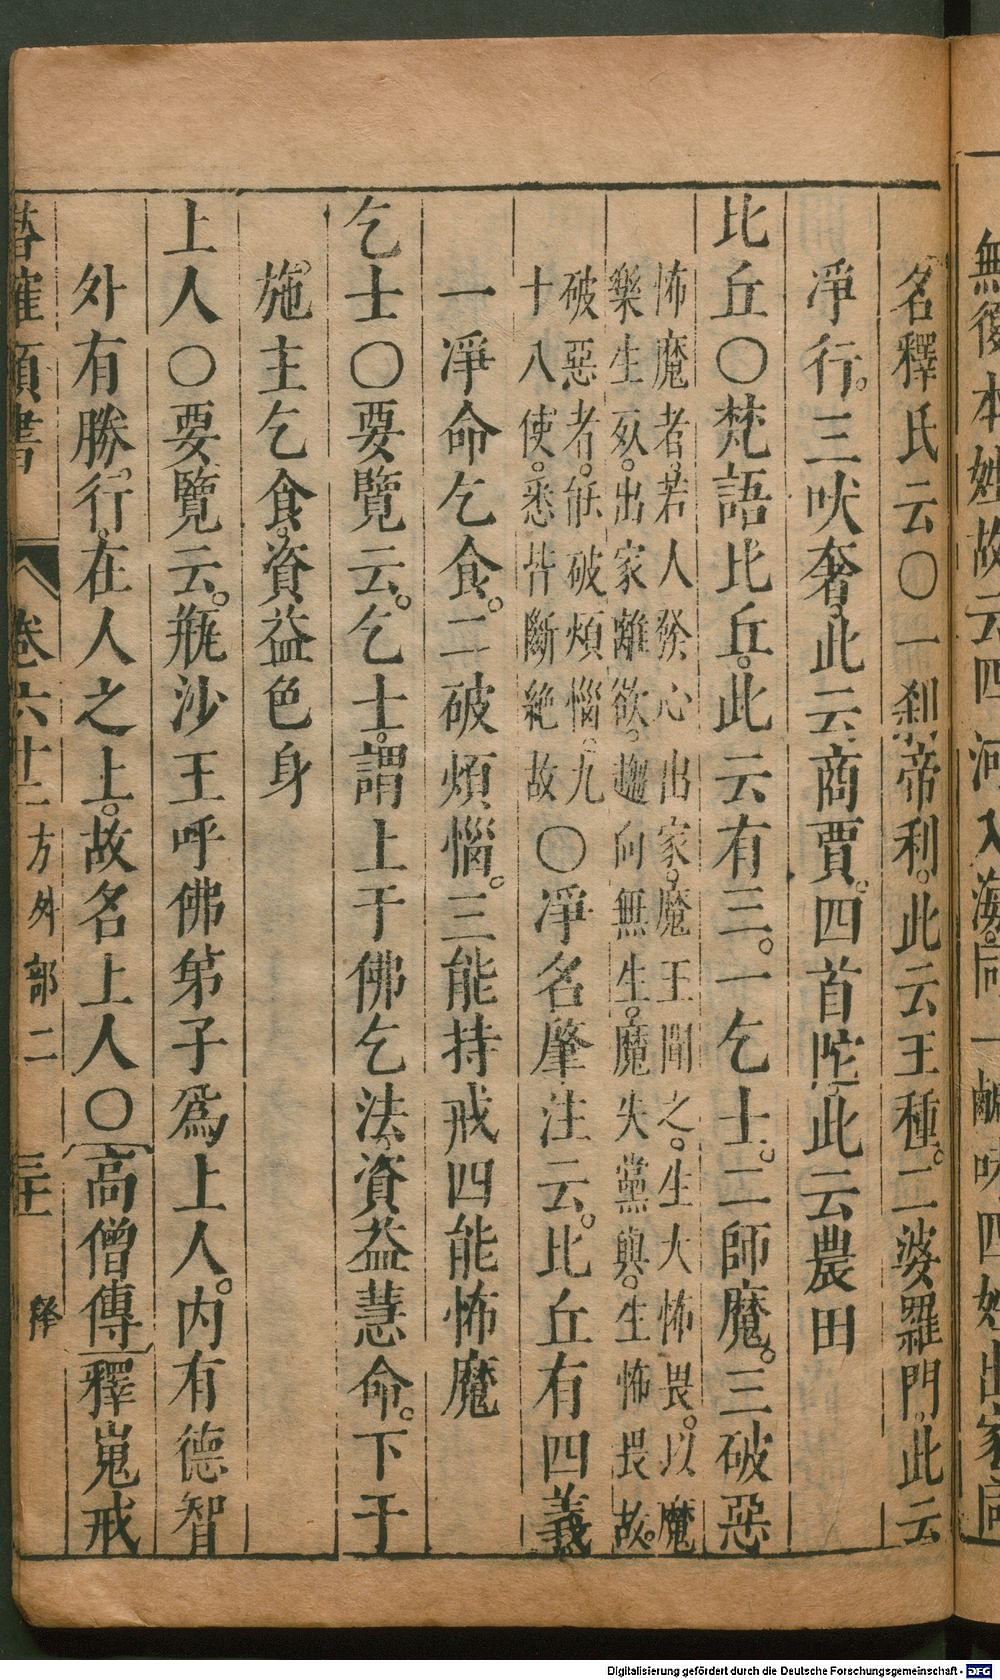 無復本姓故云四河入海同一鹹味四姓出家同
名釋氏云〇一刹帝利此云王種。二婆羅門。此云
淨行。三吠奢。此云商賈。四首陀。此云農田
比丘〇梵語比丘。此云有三。一乞士。二師魔。三破惡
怖魔者。若人發心出家。魔王聞之。生大怖畏。以魔
樂生死。出家離欲。趣向無生。魔失黨與。生怖畏故。
破惡者。能破煩惱。九
十八使。悉皆斷絶故
〇淨名肇注云。比丘有四義
一淨命乞食。二破煩惱。三能持戒四能怖魔
乞士〇要覽云。乞士。謂上于佛乞法。資益慧命。下于
施主乞食。資益色身
上人〇要覽云。瓶沙王呼佛弟子爲上人。内有德智
外有勝行。在人之上。故名上人〇高僧傳釋嵬戒
類書 卷六十二 方外部二 三十 釋
Digitalisierung gefördert durch die Deutsche Forschungsgemeinschaft - DFG